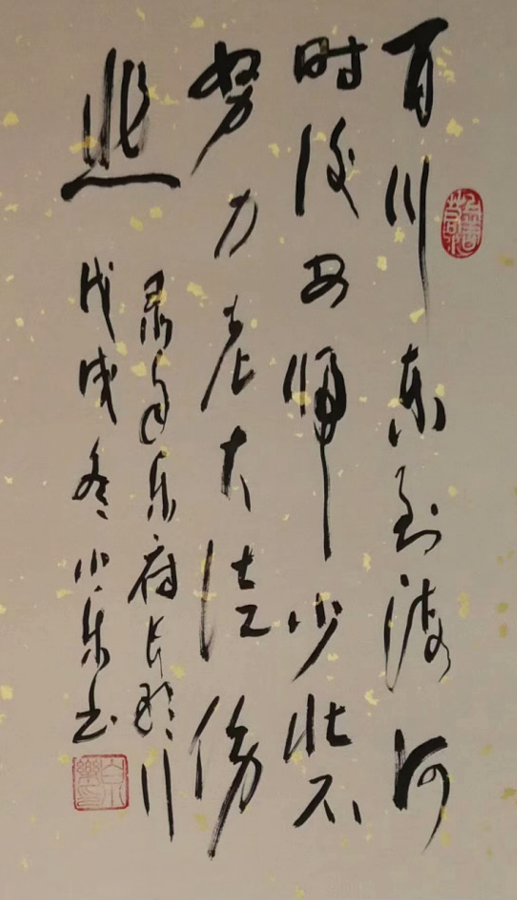 百川东到海何
时復西归少壮不
努力老大徒伤
悲
录自乐府长歌行
戊戌冬小乐书